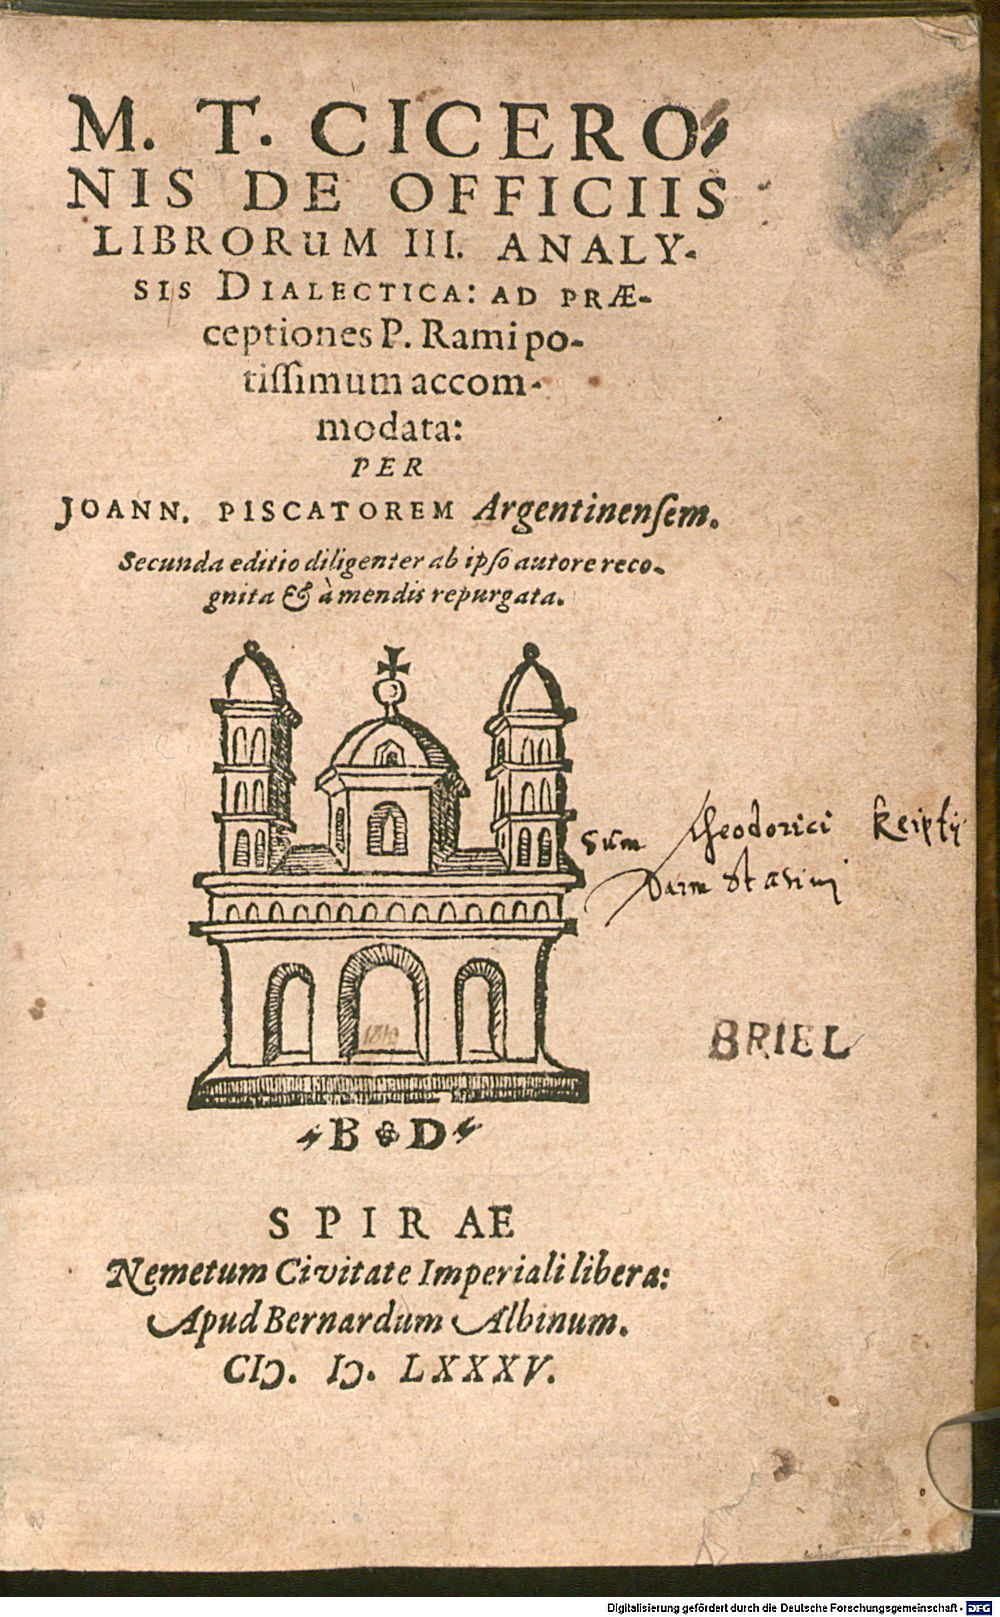 M. T. CICERO-
NIS DE OFFICIIS
LIBRORUM III. ANALY-
SIS DIALECTICA: AD PRÆ-
ceptiones P. Rami po-
tiſſimum accom-
modata:
PER
JOANN. PISCATOREM Argentinenſem.
Secunda editio diligenter ab ipſo autore reco-
gnita & à mendis repurgata.
Sum Theodorici
BRIEL
B D
SPIRAE
Nemetum Civitate Imperiali libera:
Apud Bernardum Albinum.
CIↃ. IↃ. LXXXV.
Digitalisierung gefördert durch die Deutsche Forschungsgemeinschaft - DFG